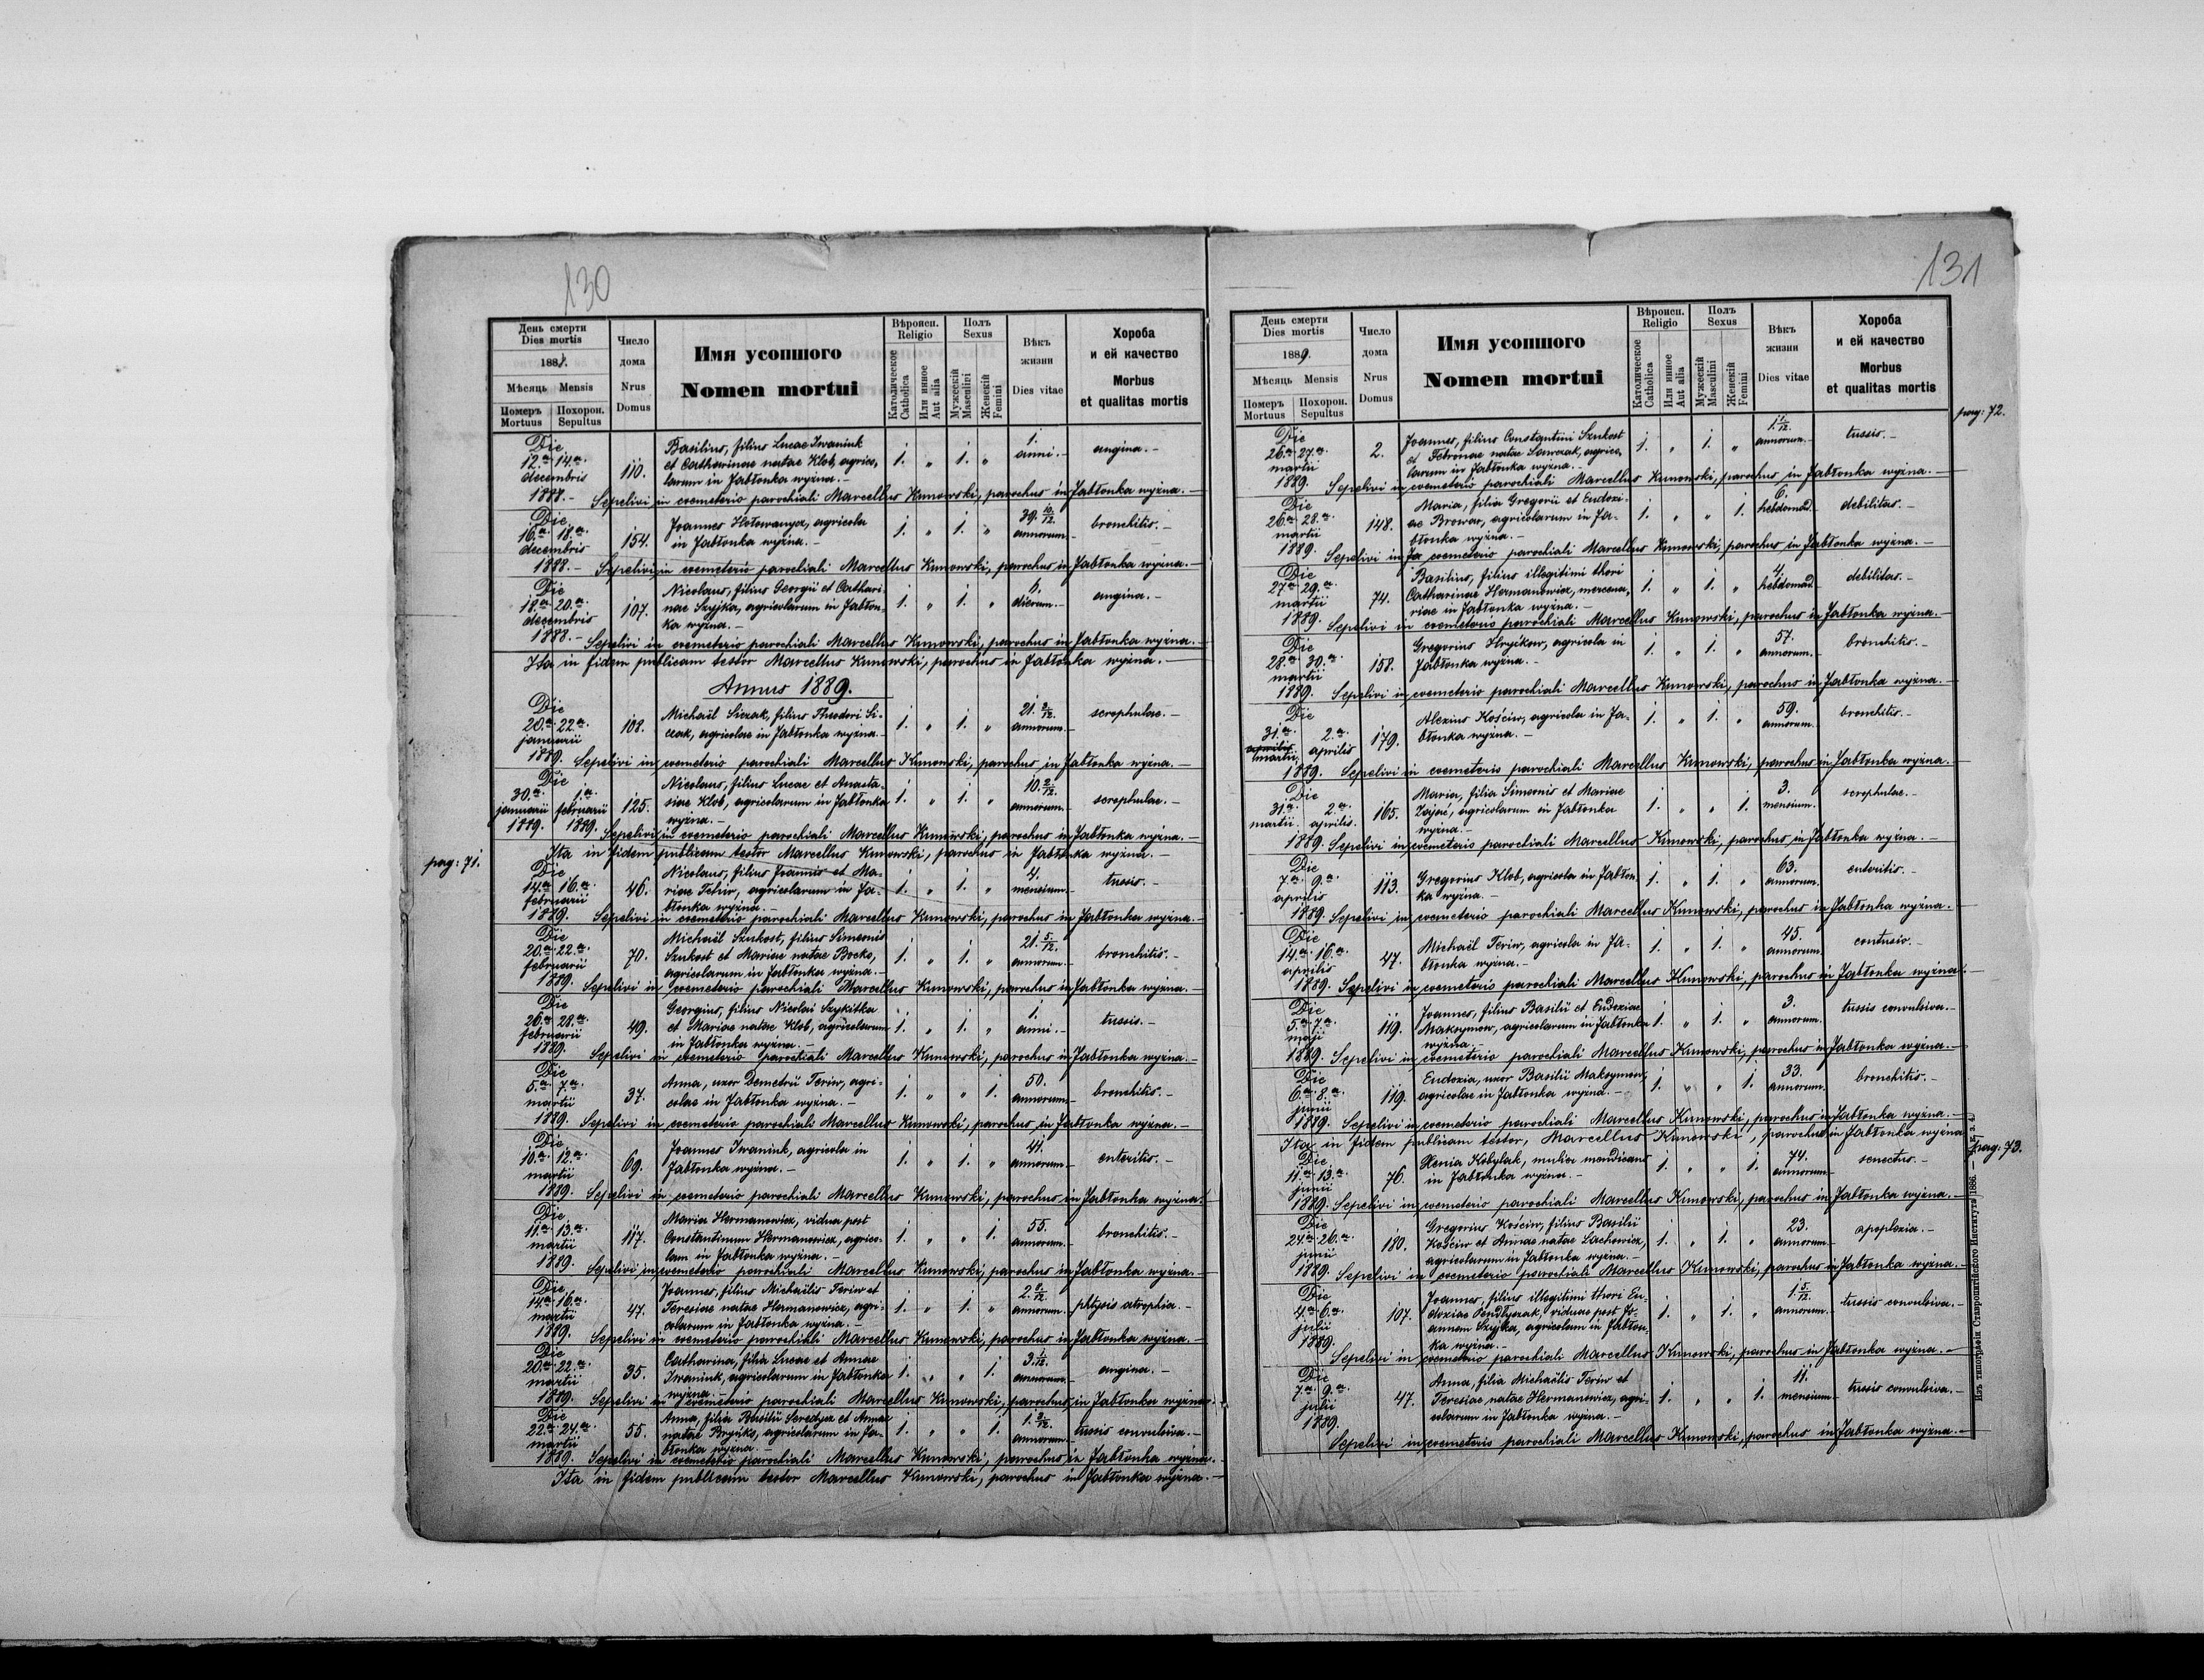 130
День смерти
Dies mortis
1888.
Мѣсяць Mensis
Померъ Mortuus
Похорон. Sepultus
Число дома
Nrus Domus
Имя усопшого
Nomen mortui
Вѣроисп.
Religio
Католическое Catholica
Или инное Aut alia
Полъ
Sexus
Мужескій Masculini
Женскій Femini
Вѣкъ жизни
Dies vitae
Хороба
и ей качество
Morbus
et qualitas mortis
Die 12.a 14.a decembris 1888.- 110. Basilius, filius Lucae Iwaniuk 1. „ 1. „ 1. anni.- angina.-
et Catharinae natae Klob, agrico-
larum in Jabłonka wyżna.-
Sepelivi in coemeterio parochiali Marcellus Kunowski, parochus in Jabłonka wyżna.-
Die 16.a 18.a decembris 1888.- 154. Joannes Hołowanycz, agricola 1. „ 1. „ 39. 10/12. annorum.- bronchitis.-
in Jabłonka wyżna.-
Sepelivi in coemeterio parochiali Marcellus Kunowski, parochus in Jabłonka wyżna.-
Die 18.a 20.a decembris 1888.- 107. Nicolaus, filius Georgii et Cathari- 1. „ 1. „ 6. dierum.- angina.-
nae Szyjka, agricolarum in Jabłon-
ka wyżna.-
Sepelivi in coemeterio parochiali Marcellus Kunowski, parochus in Jabłonka wyżna.-
Ita in fidem publicam testor Marcellus Kunowski, parochus in Jabłonka wyżna.-
Annus 1889.
Die 20.a 22.a januarii 1889. 108. Michaël Siczak, filius Theodori Si- 1. „ 1. „ 21. 2/12. annorum.- scrophulae.-
czak, agricolae in Jabłonka wyżna.-
Sepelivi in coemeterio parochiali Marcellus Kunowski, parochus in Jabłonka wyżna.-
Die 30.a januarii 1889. 1.a februarii 1889. 125. Nicolaus, filius Lucae et Anasta- 1. „ 1. „ 10. 2/12. annorum.- scrophulae.-
siae Klob, agricolarum in Jabłonka
wyżna.-
Sepelivi in coemeterio parochiali Marcellus Kunowski, parochus in Jabłonka wyżna.-
Ita in fidem publicam testor Marcellus Kunowski, parochus in Jabłonka wyżna.-
pag: 71.
Die 14.a 16.a februarii 1889. 46. Nicolaus, filius Joannis et Ma- 1. „ 1. „ 4. mensium.- tussis.-
riae agricolarum in Ja-
błonka wyżna.-
Sepelivi in coemeterio parochiali Marcellus Kunowski, parochus in Jabłonka wyżna.-
Die 20.a 22.a februarii 1889. 70. Michaël Sznkost, filius Simeonis 1. „ 1. „ 21. 5/12. annorum.- bronchitis.-
Sznkost et Mariae natae Bocko,
agricolarum in Jabłonka wyżna.-
Sepelivi in coemeterio parochiali Marcellus Kunowski, parochus in Jabłonka wyżna.-
Die 26.a 28.a februarii 1889. 49. Georgius, filius Nicolai Szykitka 1. „ 1. „ 1. anni.- tussis.-
et Mariae natae Klob, agricolarum
in Jabłonka wyżna.-
Sepelivi in coemeterio parochiali Marcellus Kunowski, parochus in Jabłonka wyżna.-
Die 5.a 7.a martii 1889. 37. Anna, uxor Demetrii Teriw, agri- 1. „ „ 1. 50. annorum.- bronchitis.-
colae in Jabłonka wyżna.-
Sepelivi in coemeterio parochiali Marcellus Kunowski, parochus in Jabłonka wyżna.-
Die 10.a 12.a martii 1889. 69. Joannes Iwaniuk, agricola in 1. „ 1. „ 41. annorum.- enteritis.-
Jabłonka wyżna.-
Sepelivi in coemeterio parochiali Marcellus Kunowski, parochus in Jabłonka wyżna.-
Die 11.a 13.a martii 1889. 117. Maria Hermanowicz, vidua post 1. „ „ 1. 55. annorum.- bronchitis.-
Constantinum Hermanowicz, agrico-
lam in Jabłonka wyżna.-
Sepelivi in coemeterio parochiali Marcellus Kunowski, parochus in Jabłonka wyżna.-
Die 14.a 16.a martii 1889. 47. Joannes, filius Michaëlis Teriw et 1. „ 1. „ annorum.- phtysis atrophia.-
Teresiae natae Hermanowicz, agri-
colarum in Jabłonka wyżna.-
Sepelivi in coemeterio parochiali Marcellus Kunowski, parochus in Jabłonka wyżna.-
Die 20.a 22.a martii 1889. 35. Catharina, filia Lucae et Annae 1. „ „ 1. 3. 1/12. annorum.- angina.-
Iwaniuk, agricolarum in Jabłonka
wyżna.-
Sepelivi in coemeterio parochiali Marcellus Kunowski, parochus in Jabłonka wyżna.-
Die 22.a 24.a martii 1889. 55. Anna, filia Basilii Seredycz et Annae 1. „ „ 1. annorum.- tussis convulsiva.-
natae agricolarum in Ja-
błonka wyżna.-
Sepelivi in coemeterio parochiali Marcellus Kunowski, parochus in Jabłonka wyżna.-
Ita in fidem publicam testor Marcellus Kunowski, parochus in Jabłonka wyżna.-
131
День смерти
Dies mortis
1889.
Мѣсяць Mensis
Померъ Mortuus
Похорон. Sepultus
Число дома
Nrus Domus
Имя усопшого
Nomen mortui
Вѣроисп.
Religio
Католическое Catholica
Или инное Aut alia
Полъ
Sexus
Мужескій Masculini
Женскій Femini
Вѣкъ жизни
Dies vitae
Хороба
и ей качество
Morbus
et qualitas mortis
pag: 72.
Die 26.a 27.a martii 1889. 2. Joannes, filius Constantini Sznkost 1. „ 1. „ annorum.- tussis.-
et Febronae natae agrico-
larum in Jabłonka wyżna.-
Sepelivi in coemeterio parochiali Marcellus Kunowski, parochus in Jabłonka wyżna.-
Die 26.a 28.a martii 1889. 148. Maria, filia Gregorii et Eudoxi- 1. „ „ 1. 6. hebdomad.- debilitas.-
ae Browar, agricolarum in Ja-
błonka wyżna.-
Sepelivi in coemeterio parochiali Marcellus Kunowski, parochus in Jabłonka wyżna.-
Die 27.a 29.a martii 1889. 74. Basilius, filius illegitimi thori 1. „ 1. „ 4. hebdomad.- debilitas.-
Catharinae Hermanowicz, mercena-
riae in Jabłonka wyżna.-
Sepelivi in coemeterio parochiali Marcellus Kunowski, parochus in Jabłonka wyżna.-
Die 28.a 30.a martii 1889. 158. Gregorius Hryckow, agricola in 1. „ 1. „ 57. annorum.- bronchitis.-
Jabłonka wyżna.-
Sepelivi in coemeterio parochiali Marcellus Kunowski, parochus in Jabłonka wyżna.-
Die 31.a aprilis martii 2.a aprilis 1889. 179. Alexius Kościw, agricola in Ja- 1. „ 1. „ 59. annorum.- bronchitis.-
błonka wyżna.-
Sepelivi in coemeterio parochiali Marcellus Kunowski, parochus in Jabłonka wyżna.-
Die 31.a martii 2.a aprilis. 1889. 165. Maria, filia Simeonis et Mariae 1. „ „ 1. 3. mensium.- scrophulae.-
Zajać, agricolarum in Jabłonka
wyżna.-
Sepelivi in coemeterio parochiali Marcellus Kunowski, parochus in Jabłonka wyżna.-
Die 7.a 9.a aprilis 1889. 113. Gregorius Klob, agricola in Jabłon- 1. „ 1. „ 63. annorum.- enteritis.-
ka wyżna.-
Sepelivi in coemeterio parochiali Marcellus Kunowski, parochus in Jabłonka wyżna.-
Die 14.a 16.a aprilis 1889. 47. Michaël Teriw, agricola in Ja- 1. „ 1. „ 45. annorum.- contusio.-
błonka wyżna.-
Sepelivi in coemeterio parochiali Marcellus Kunowski, parochus in Jabłonka wyżna.-
Die 5.a 7.a maji 1889. 119. Joannes, filius Basilii et Eudoxiae 1. „ 1. „ 3. annorum.- tussis convulsiva.-
Maksymow, agricolarum in Jabłonka
wyżna.-
Sepelivi in coemeterio parochiali Marcellus Kunowski, parochus in Jabłonka wyżna.-
Die 6.a 8.a junii 1889. 119. Eudoxia, uxor Basilii Maksymow, 1. „ „ 1. 33. annorum.- bronchitis.-
agricolae in Jabłonka wyżna.-
Sepelivi in coemeterio parochiali Marcellus Kunowski, parochus in Jabłonka wyżna.-
Ita in fidem publicam testor, Marcellus Kunowski, parochus in Jabłonka wyżna
pag: 73.
Die 11.a 13.a junii 1889. 76. Xenia Kobylak, mulier mendicans 1. „ „ 1. 74. annorum.- senectus.-
in Jabłonka wyżna.-
Sepelivi in coemeterio parochiali Marcellus Kunowski, parochus in Jabłonka wyżna.-
Die 24.a 26.a junii 1889. 180. Gregorius Kościw, filius Basilii 1. „ 1. „ 23. annorum.- apoplexia.-
Kościw et Annae natae Lachowicz,
agricolarum in Jabłonka wyżna.-
Sepelivi in coemeterio parochiali Marcellus Kunowski, parochus in Jabłonka wyżna.-
Die 4.a 6.a julii 1889. 107. Joannes, filius illegitimi thori Eu- 1. „ 1. „ 1 5/12. annorum.- tussis convulsiva.-
doxiae viduae post Jo-
annem Szyjka, agricolam in Jabłon-
ka wyżna.-
Sepelivi in coemeterio parochiali Marcellus Kunowski, parochus in Jabłonka wyżna.-
Die 7.a 9.a julii 1889. 47. Anna, filia Michaëlis Teriw et 1. „ „ 1. 11. mensium.- tussis convulsiva.-
Teresiae natae Hermanowicz, agri-
colarum in Jabłonka wyżna.-
Sepelivi in coemeterio parochiali Marcellus Kunowski, parochus in Jabłonka wyżna.-
Изъ типографіи Ставропигійского Института 1886.